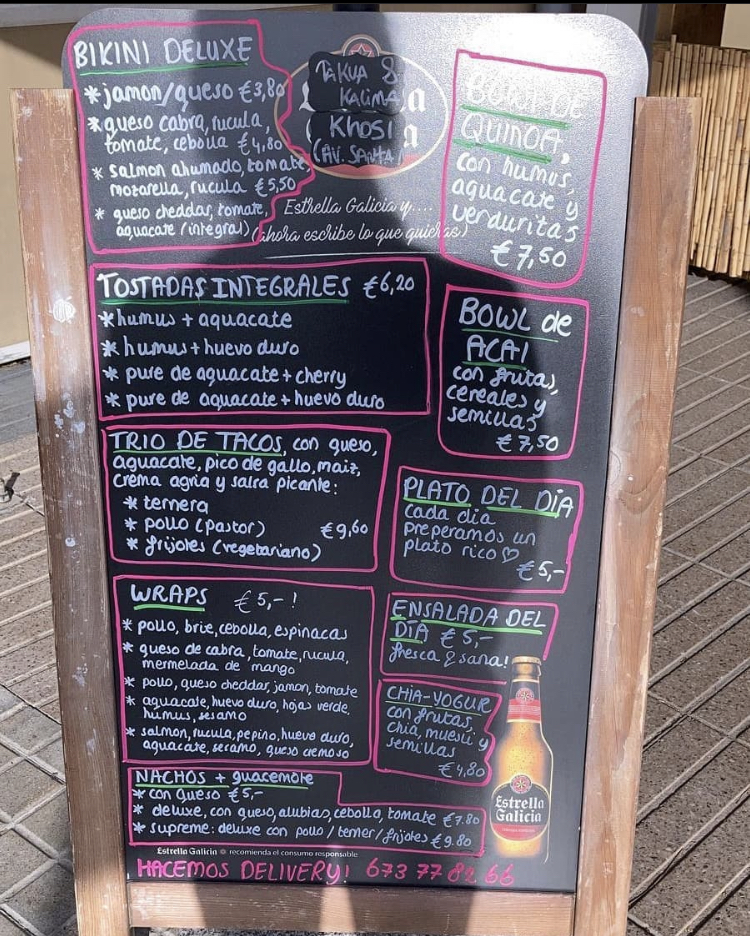 BIKINI DELUXE
*jamon/queso €3,80
*queso cabra, rucula,
tomate, cebolla €4,80
* salmon ahumado, tomate,
mozarella, rucula €5,50
* queso cheddar, tomate,
aguacate (integral)
TAKUA &
KALIMA
KHOSI
(AV. SARRIA)
Estrella Galicia y....
(ahora escribe lo que quieras)
BOWL DE
QUINOA,
con humus,
aguacate y
verduritas
€7,50
TOSTADAS INTEGRALES €6,20
*humus + aguacate
*humus + huevo duro
* pure de aguacate + cherry
* pure de aguacate + huevo duro
BOWL de
ACAI
con frutas,
cereales y
semillas
€7,50
TRIO DE TACOS, con queso,
aguacate, pico de gallo, maiz,
crema agria y salsa picante:
* ternera
* pollo (pastor) €9,60
* frijoles (vegetariano)
PLATO DEL DÍA
cada dia
preperamos un
plato rico ♡
€5,-
WRAPS €5,-!
* pollo, brie, cebolla, espinacas
* queso de cabra, tomate, rucula,
mermelada de mango
* pollo, queso cheddar, jamon, tomate
* aguacate, huevo duro, hojas verde,
humus, sesamo
* salmon, rucula, pepino, huevo duro,
aguacate, sesamo, queso cremoso
ENSALADA DEL
DÍA €5,-
fresca & sana!
CHIA-YOGUR
con frutas,
chia, muesli y
semillas
€4,80
NACHOS + guacemole
* con queso €5,-
* deluxe, con queso, alubias, cebolla, tomate €7.80
* supreme: deluxe con pollo / terner / frijoles €9.80
Estrella
Galicia
Estrella Galicia recomienda el consumo responsable
HACEMOS DELIVERY! 673 77 82 66